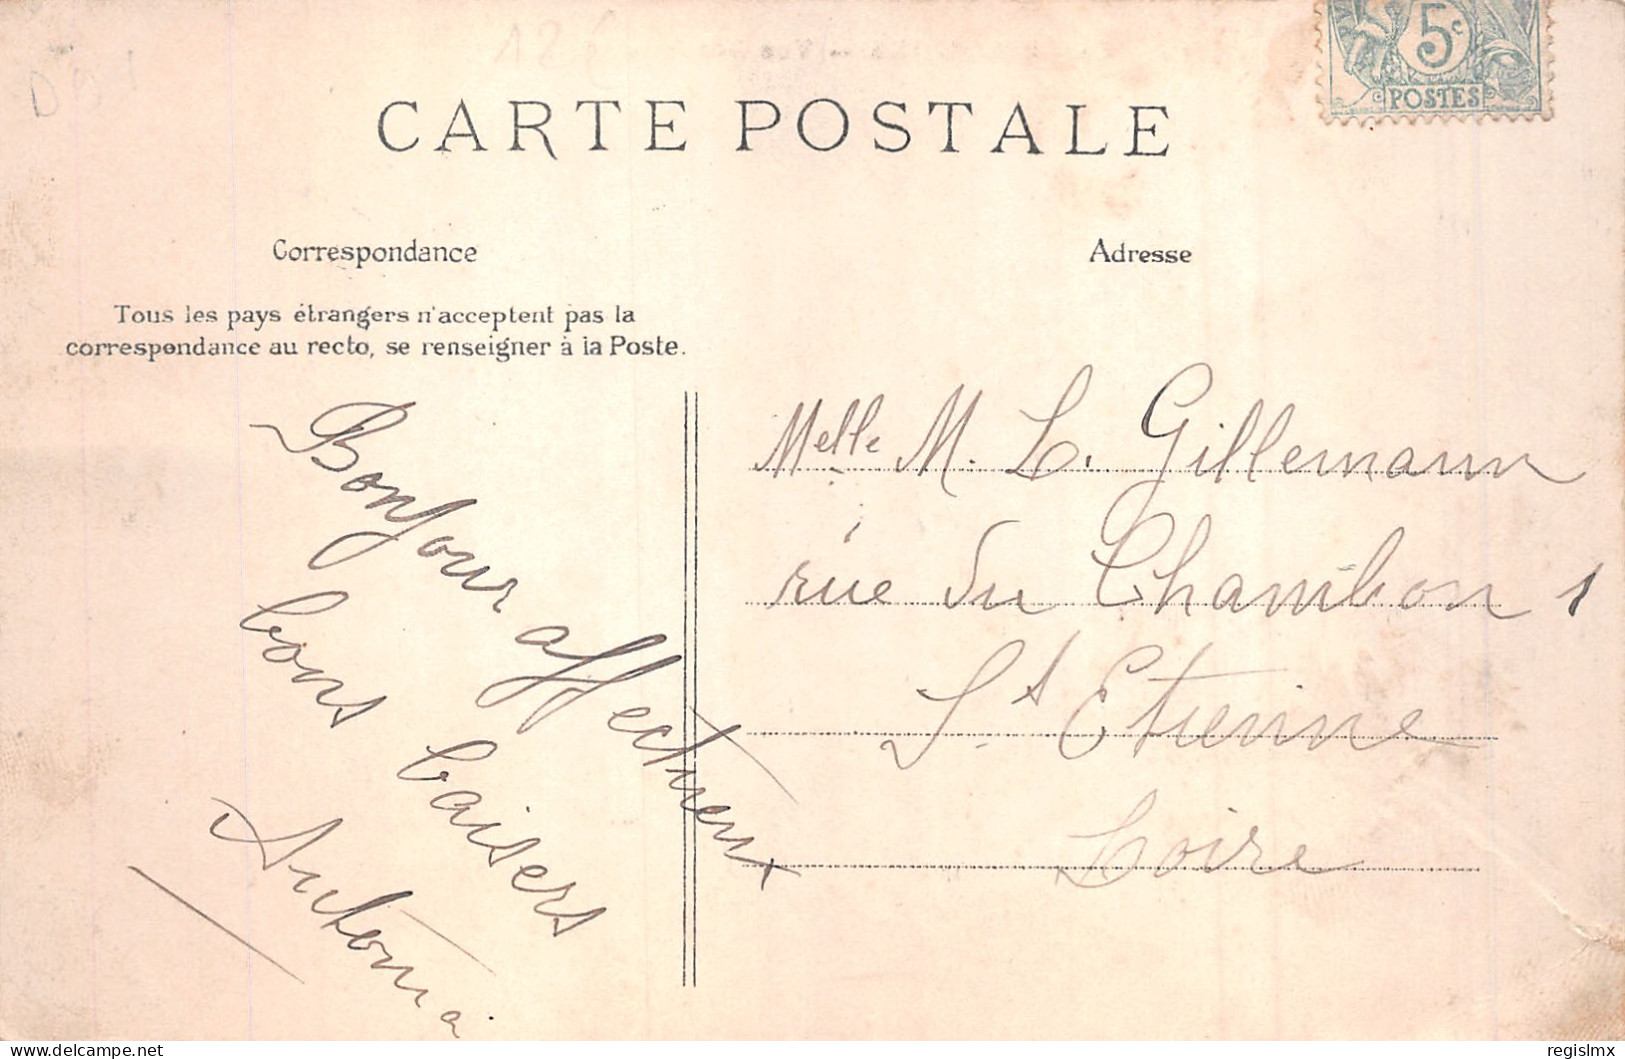 5c
POSTES
CARTE POSTALE
Correspondance
Tous les pays étrangers n'acceptent pas la
correspondance au recto, se renseigner à la Poste.
Bonjour affectueux
bons baisers
Antonia
Adresse
Melle M. L. Gillemann
rue du Chambon 1
St. Etienne
Loire
delcampe.net
regislmx